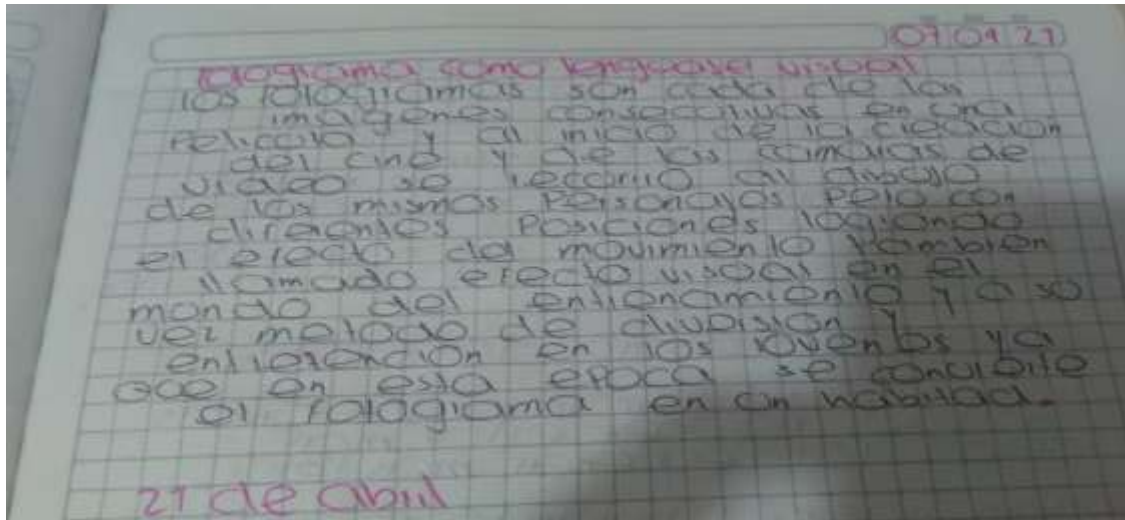 07 09 21
fotograma como lenguaje visual
los fotogramas son cada de las
imagenes consecutivas en una
pelicula y al inicio de la creacion
del cine y de las camaras de
video se recorrio al dibujo
de los mismos Personajes Pero con
diferentes Posiciones logrando
el efecto del movimiento tambien
llamado efecto visual en el
mundo del entrenamiento y a su
vez metodo de diversion y
en los jovenes ya
que en esta epoca se convierte
el fotograma en un habitad.
21 de abril